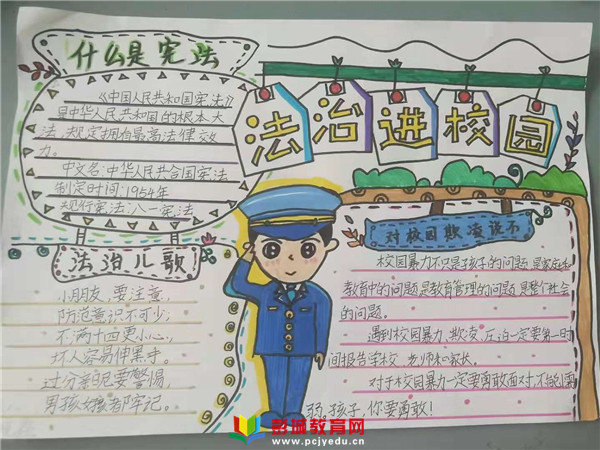 什么是宪法
《中国人民共和国宪法》
是中华人民共和国的根本大
法,规定拥有最高法律效
力。
中文名:中华人民共合国宪法
制定时间:1954年
现行宪法:八一宪法
法治进校园
法治儿歌
小朋友,要注意,
防范意识不可少;
不满十四更小心,
坏人容易伸黑手。
过分亲昵要警惕,
男孩女孩都牢记。
对校园欺凌说不
校园暴力不只是孩子的问题,是家庭
教育中的问题,是教育管理的问题,是整个社会
的问题。
遇到校园暴力、欺凌、压迫一定要第一时
间报告学校、老师和家长。
对于校园暴力一定要勇敢面对,不能懦
弱。孩子,你要勇敢!
彭城教育网
www.pcjyedu.cn